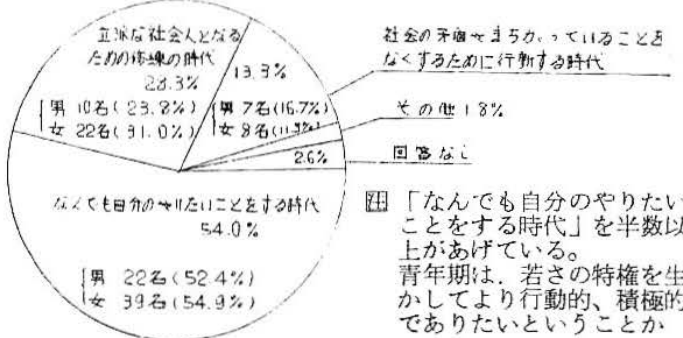 立派な社会人となる
ための修練の時代
28.3%
男 10名(23.8%)
女 22名(31.0%)
13.3%
男 7名(16.7%)
女 8名(11.3%)
社会の矛盾やまちがっていることを
なくするために行動する時代
その他 1.8%
2.6%
回答なし
なんでも自分のやりたいことをする時代
54.0%
男 22名(52.4%)
女 39名(54.9%)
注 「なんでも自分のやりたい
ことをする時代」を半数以
上があげている。
青年期は、若さの特権を生
かしてより行動的、積極的
でありたいということか